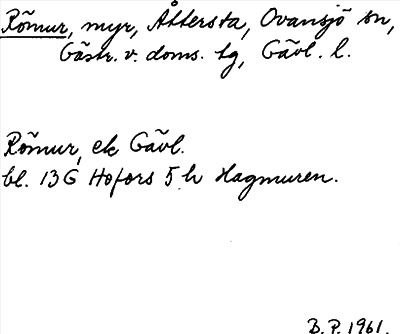 Römur, myr, Åttersta, Ovansjö sn,
Gästr. v. doms. tg, Gävl. l.
Römur, ek Gävl.
bl. 13G Hofors 5 h Hagmuren.
B.P. 1961.